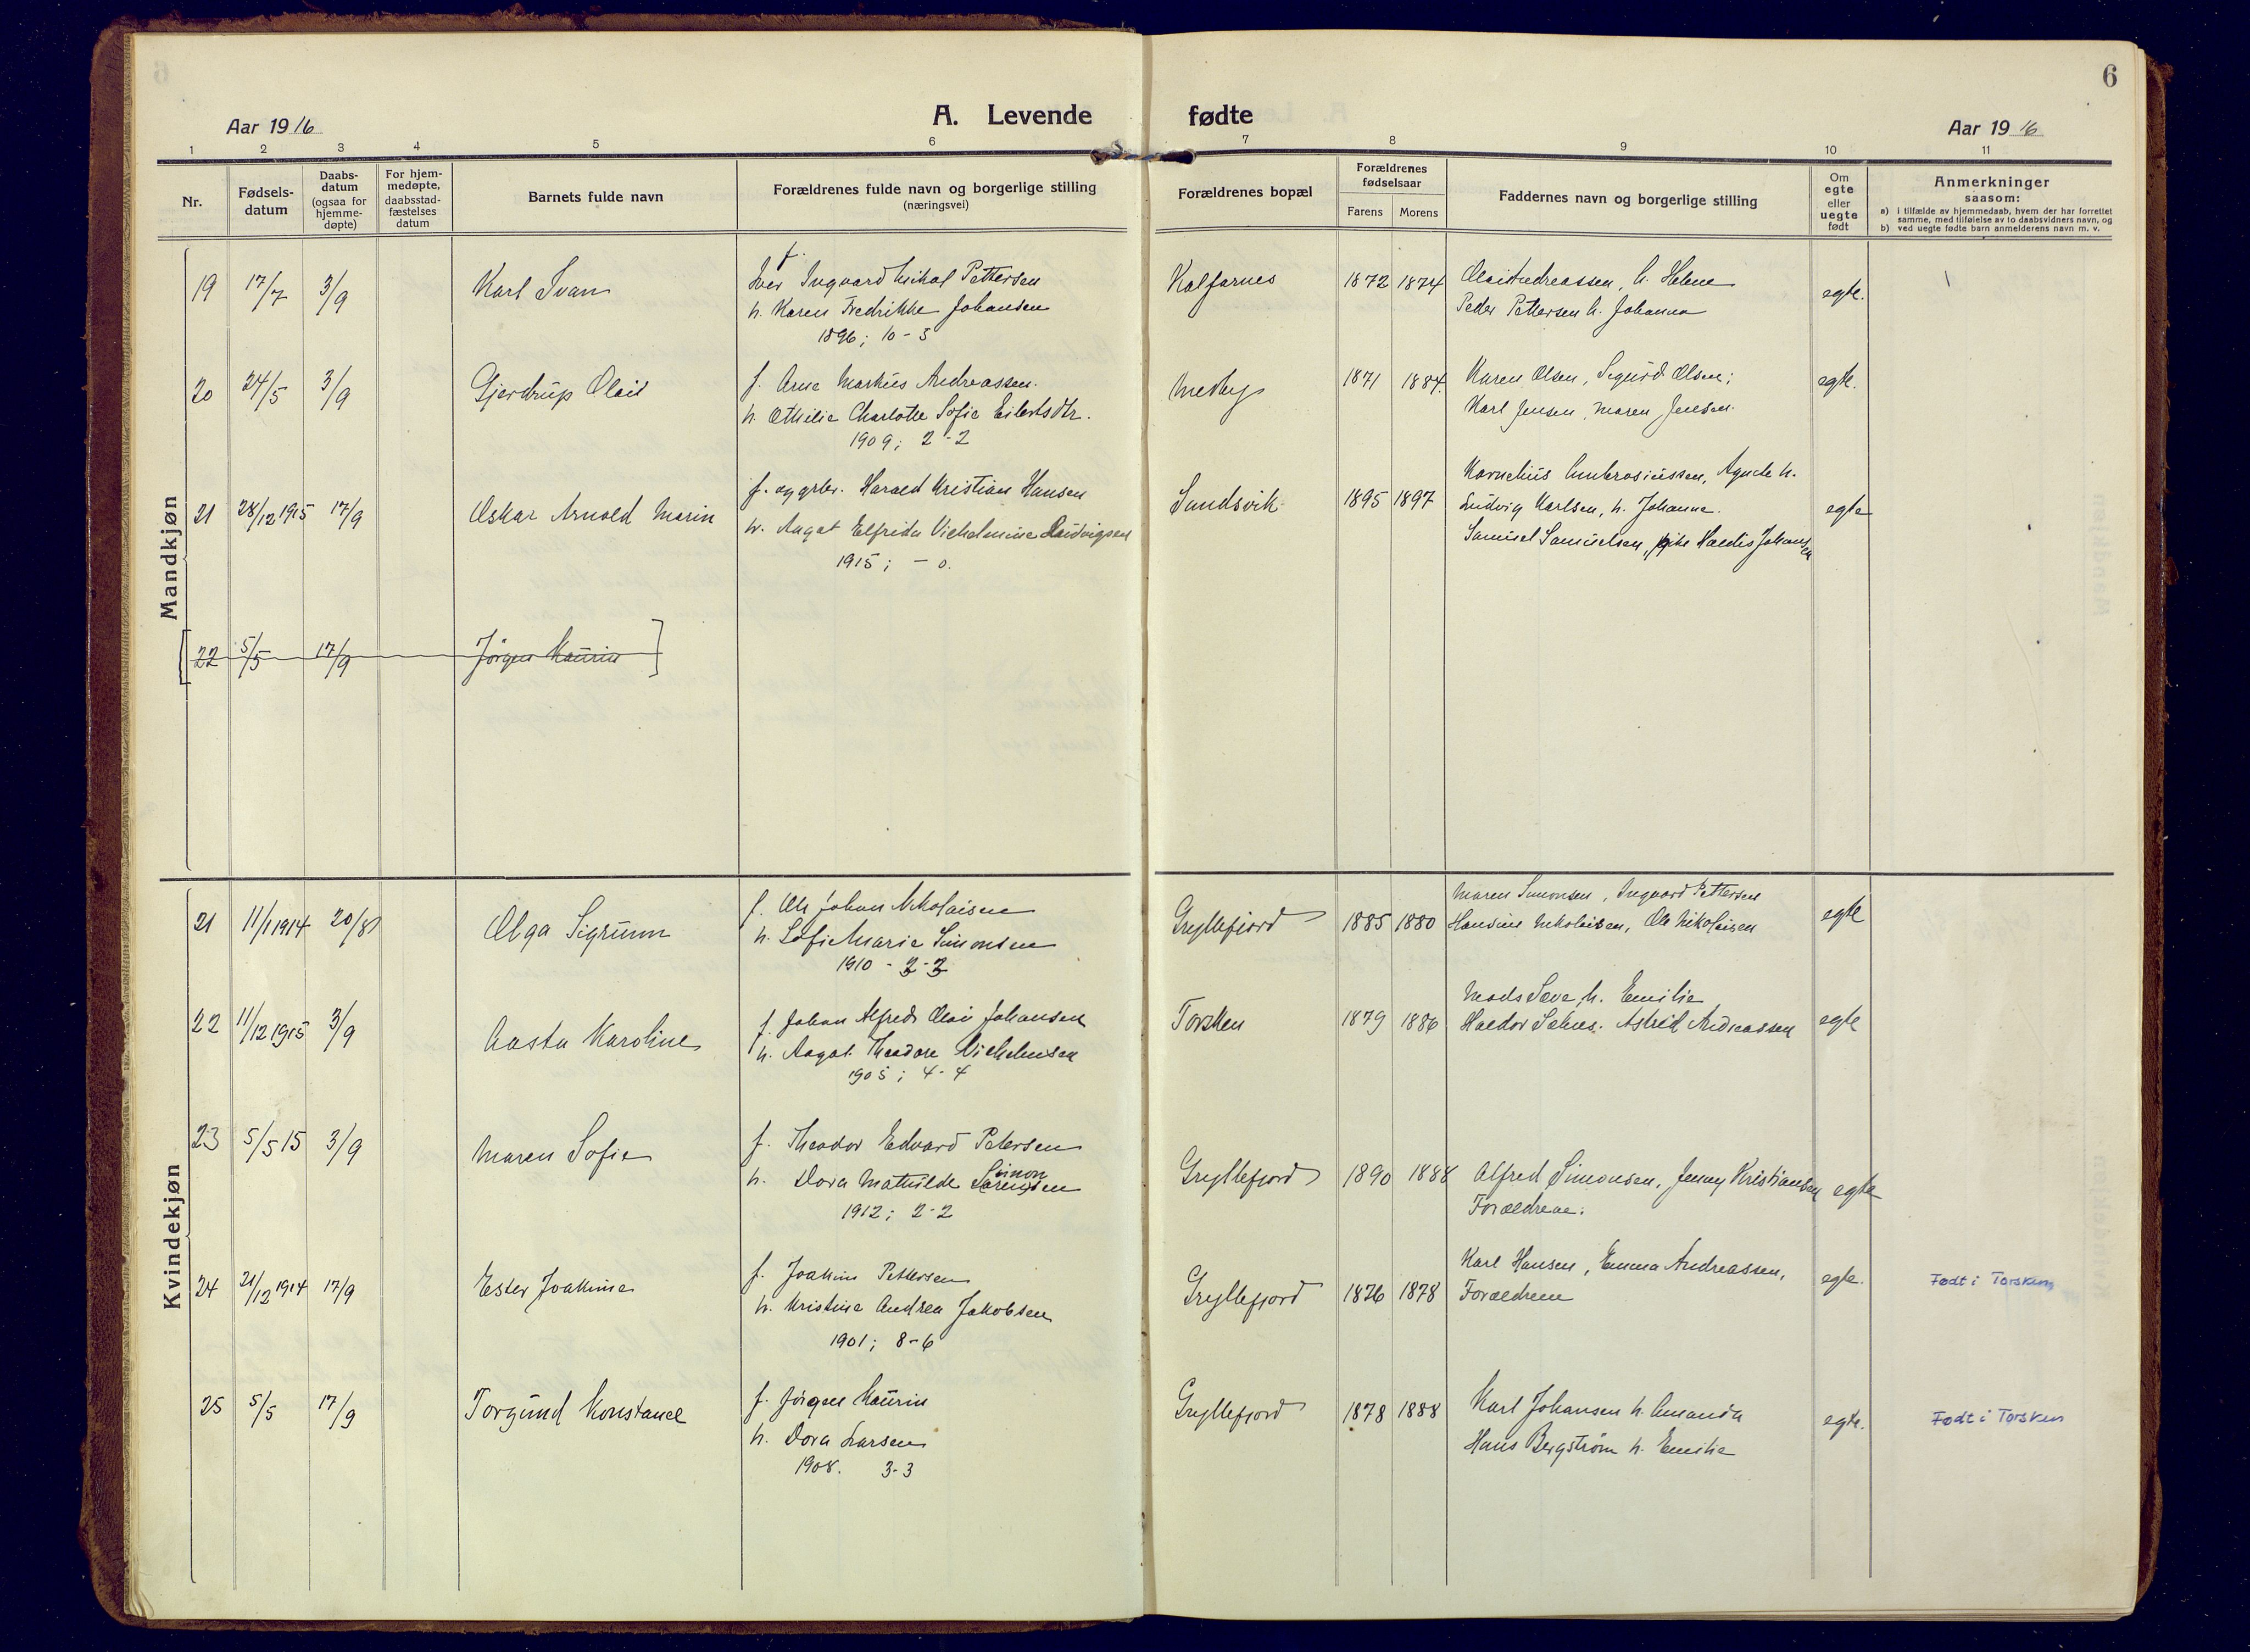 6
A. Levende fødte
Aar 1916
Aar 1916
1 2 3 4 5 6 7 8 9 10 11
Nr.
Fødsels-
datum
Daabs-
datum
(ogsaa for
hjemme-
døpte)
For hjem-
medøpte,
daabsstad-
fæstelses
datum
Barnets fulde navn
Forældrenes fulde navn og borgerlige stilling
(næringsvei)
Forældrenes bopæl
Forældrenes
fødselsaar
Farens Morens
Faddernes navn og borgerlige stilling
Om
egte
eller
uegte
født
Anmerkninger
saasom:
a) i tilfælde av hjemmedaab, hvem der har forrettet
samme, med tilføielse av to daabsvidners navn, og
b) ved uegte fødte barn anmelderens navn m. v.
Mandkjøn
19 17/7 3/9 Karl Ivan
f.
Iver Ingvard Mikal Pettersen
h. Karen Fredrikke Johansen
1896; 10-3
Kalfarnes 1872 1874
Olai Andreassen, h. Helene
Peder Pettersen h. Johanna
egte.
20 24/5 3/9 Gjertrup Olais
f. Arne Markus Andreassen.
h. Othilie Charlotte Sofie Eilertsdtr.
1909; 2-2
Medby 1871 1884.
Karen Olsen, Sigurd Olsen;
Karl Jensen, Maren Jensen.
egte.
21 28/12 1915 17/9 Oskar Arnold Marin
f. Harald Kristian Hansen
h. Aagot Elfrida Vilhelmine Ludvigsen
1915; - 0.
Sandsvik 1895 1897
Kornelius Ambrosiussen, Agnete h.
Ludvig Karlsen, h. Johanna.
Samuel Samuelsen, pike Haldis Johansen
egte
[22 5/5 17/9 Jörgen Kaurin]
Kvindekjøn
21 11/1 1914 20/8 Olga Sigrunn
f. Ole Johan Nikolaisen
h. Sofie Marie Simonsen
1910 - 3-3
Gryllefjord 1885 1880
Maren Simonsen, Ingvard Pettersen
Hansine Nikolaisen, Ole Nikolaisen
egte
22 11/12 1915 3/9 Aasta Karoline
f. Johan Alfred Olai Johansen
h. Aagot Theodore Vilhelmsen
1905; 4-4
Torsken 1879 1886
Mads h. Emilie
Haldor Astrid Andreassen
egte
23 5/5 15 3/9 Maren Sofie
f. Theodor Edvard Petersen
h. Dora Mathilde Simonsen
1912; 2-2
Gryllefjord 1890 1888
Alfred Simonsen, Jenny Kristiansen
Forældrene.
egte
24 21/12 1914 17/9 Ester Joakima
f. Joakim Pettersen
h. Kristine Andrea Jakobsen
1901; 8-6
Gryllefjord 1876 1878
Karl Hansen, Emma Andreassen,
Forældrene
egte.
Født i Torsken
25 5/5 17/9 Torgund Konstance
f. Jörgen Kaurin
h. Dora Larsen
1908. 3-3
Gryllefjord 1878 1888
Karl Johansen h. Amanda
Hans Bergström h. Emilie
egte.
Født i Torsken